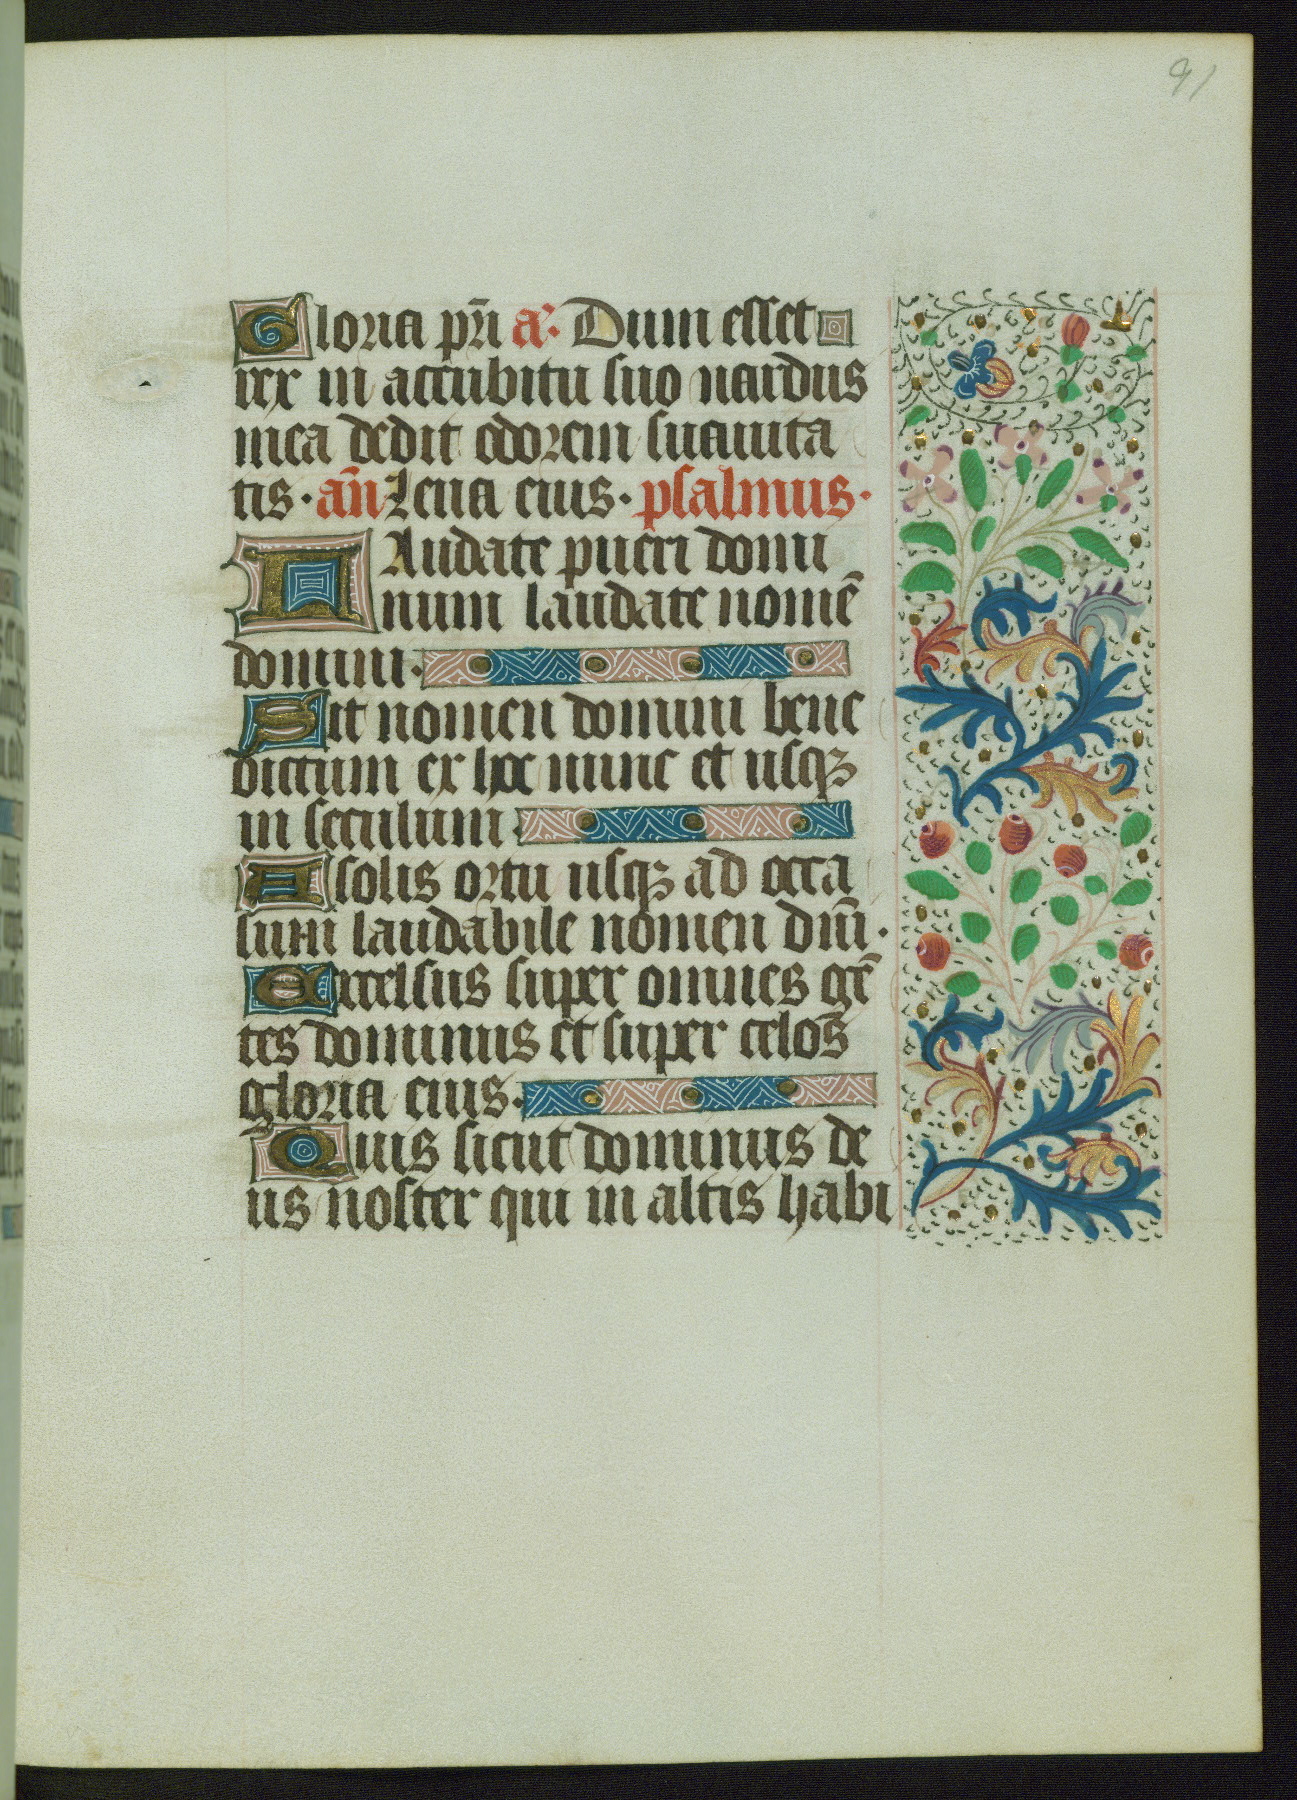 91
Gloria pr̄i a᷒. Dum esset
rex in accubitu suo nardus
mea dedit odorem suauita
tis · an̄ Leua eius · psalmus ·
Laudate pueri domi
num laudate nomē
domini ·
Sit nomen domini bene
dictum ex hoc nunc et usqꝫ
in seculum ·
A solis ortu usqꝫ ad occa
sum laudabile nomen dn̄i ·
Excelsus super omnes gē
tes dominus et super celos
gloria eius ·
Quis sicut dominus de
us noster qui in altis habi